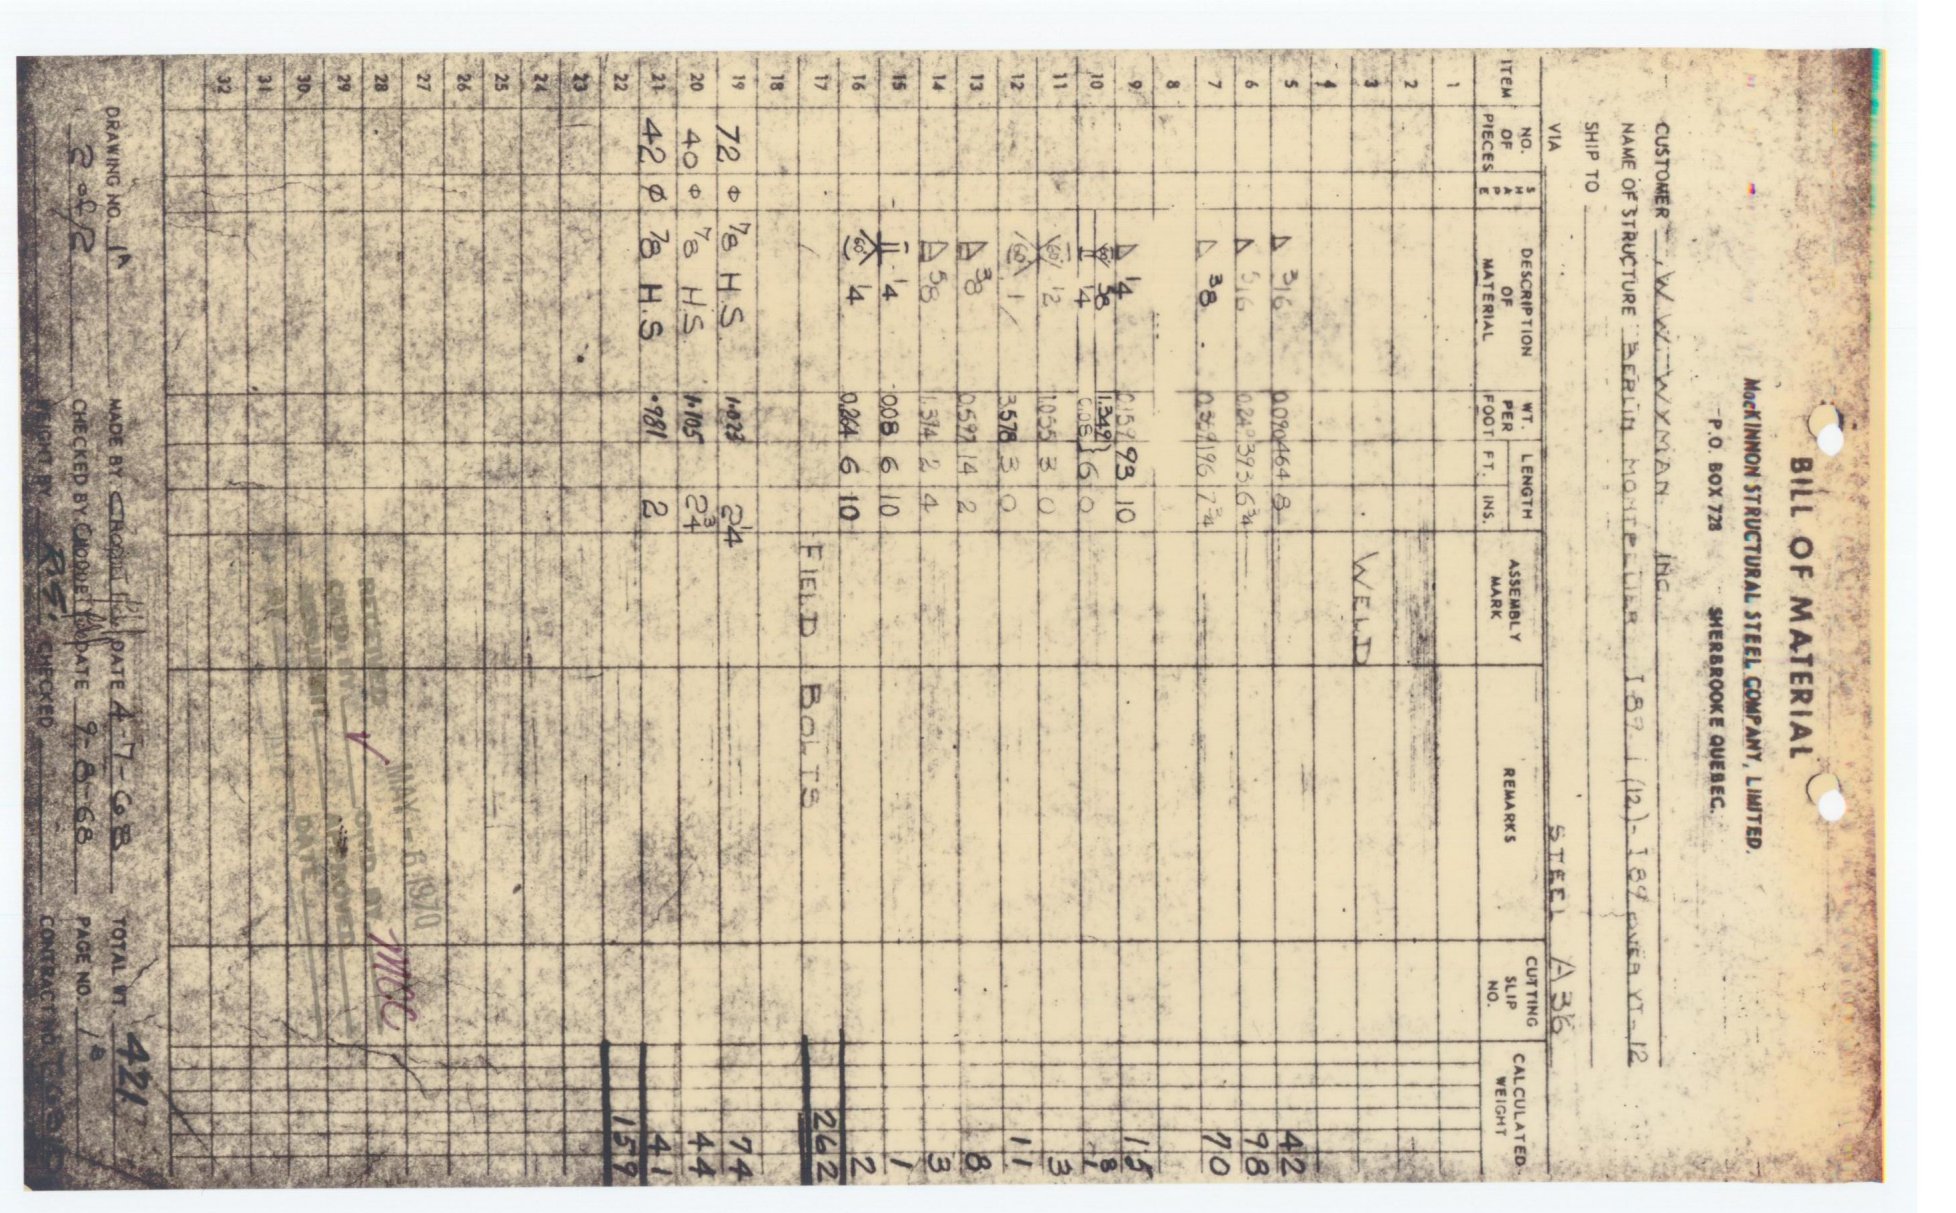 BILL OF MATERIAL
MacKINNON STRUCTURAL STEEL COMPANY, LIMITED.
P.O. BOX 728 SHERBROOKE QUEBEC.
CUSTOMER W. W. WYMAN INC.
NAME OF STRUCTURE BERLIN MONTPELIER I 89 1 (12)-I89 OVER VT-12
SHIP TO
VIA STEEL A36
ITEM NO. OF PIECES SHAPE DESCRIPTION OF MATERIAL WT. PER FOOT LENGTH FT. INS. ASSEMBLY MARK REMARKS CUTTING SLIP NO. CALCULATED WEIGHT
1
2
3 WELD
4
5 3/16 0.090 464 8 42
6 5/16 393 6 3/4 98
7 3/8 196 7 3/4 70
8
9 1/4 0.159 93 10 15
10 60° 3/8 1.349 6 0 8
1/4 1
11 60° 1/2 1.055 3 0 3
12 60° 1 3.578 3 0 11
13 3/8 0.597 14 2 8
14 5/8 1.314 2 4 3
15 1/4 .008 6 10 1
16 60° 1/4 0.264 6 10 2
17 FIELD BOLTS 262
18
19 72 φ 7/8 H.S. 1.023 2 1/4 74
20 40 φ 7/8 H.S. 1.105 2 3/4 44
21 42 φ 7/8 H.S .981 2 41
22 159
23
24
25
26
27
28
29
30
31
32
RECEIVED MAY - 6 1970
CK'D BY
APPROVED
DATE
MCC
DRAWING NO. 1A MADE BY DATE 4-7-68 TOTAL WT. 421
2 of 2 CHECKED BY DATE 9-8-68 PAGE NO. 1B
WEIGHT BY R.S. CHECKED CONTRACT NO.